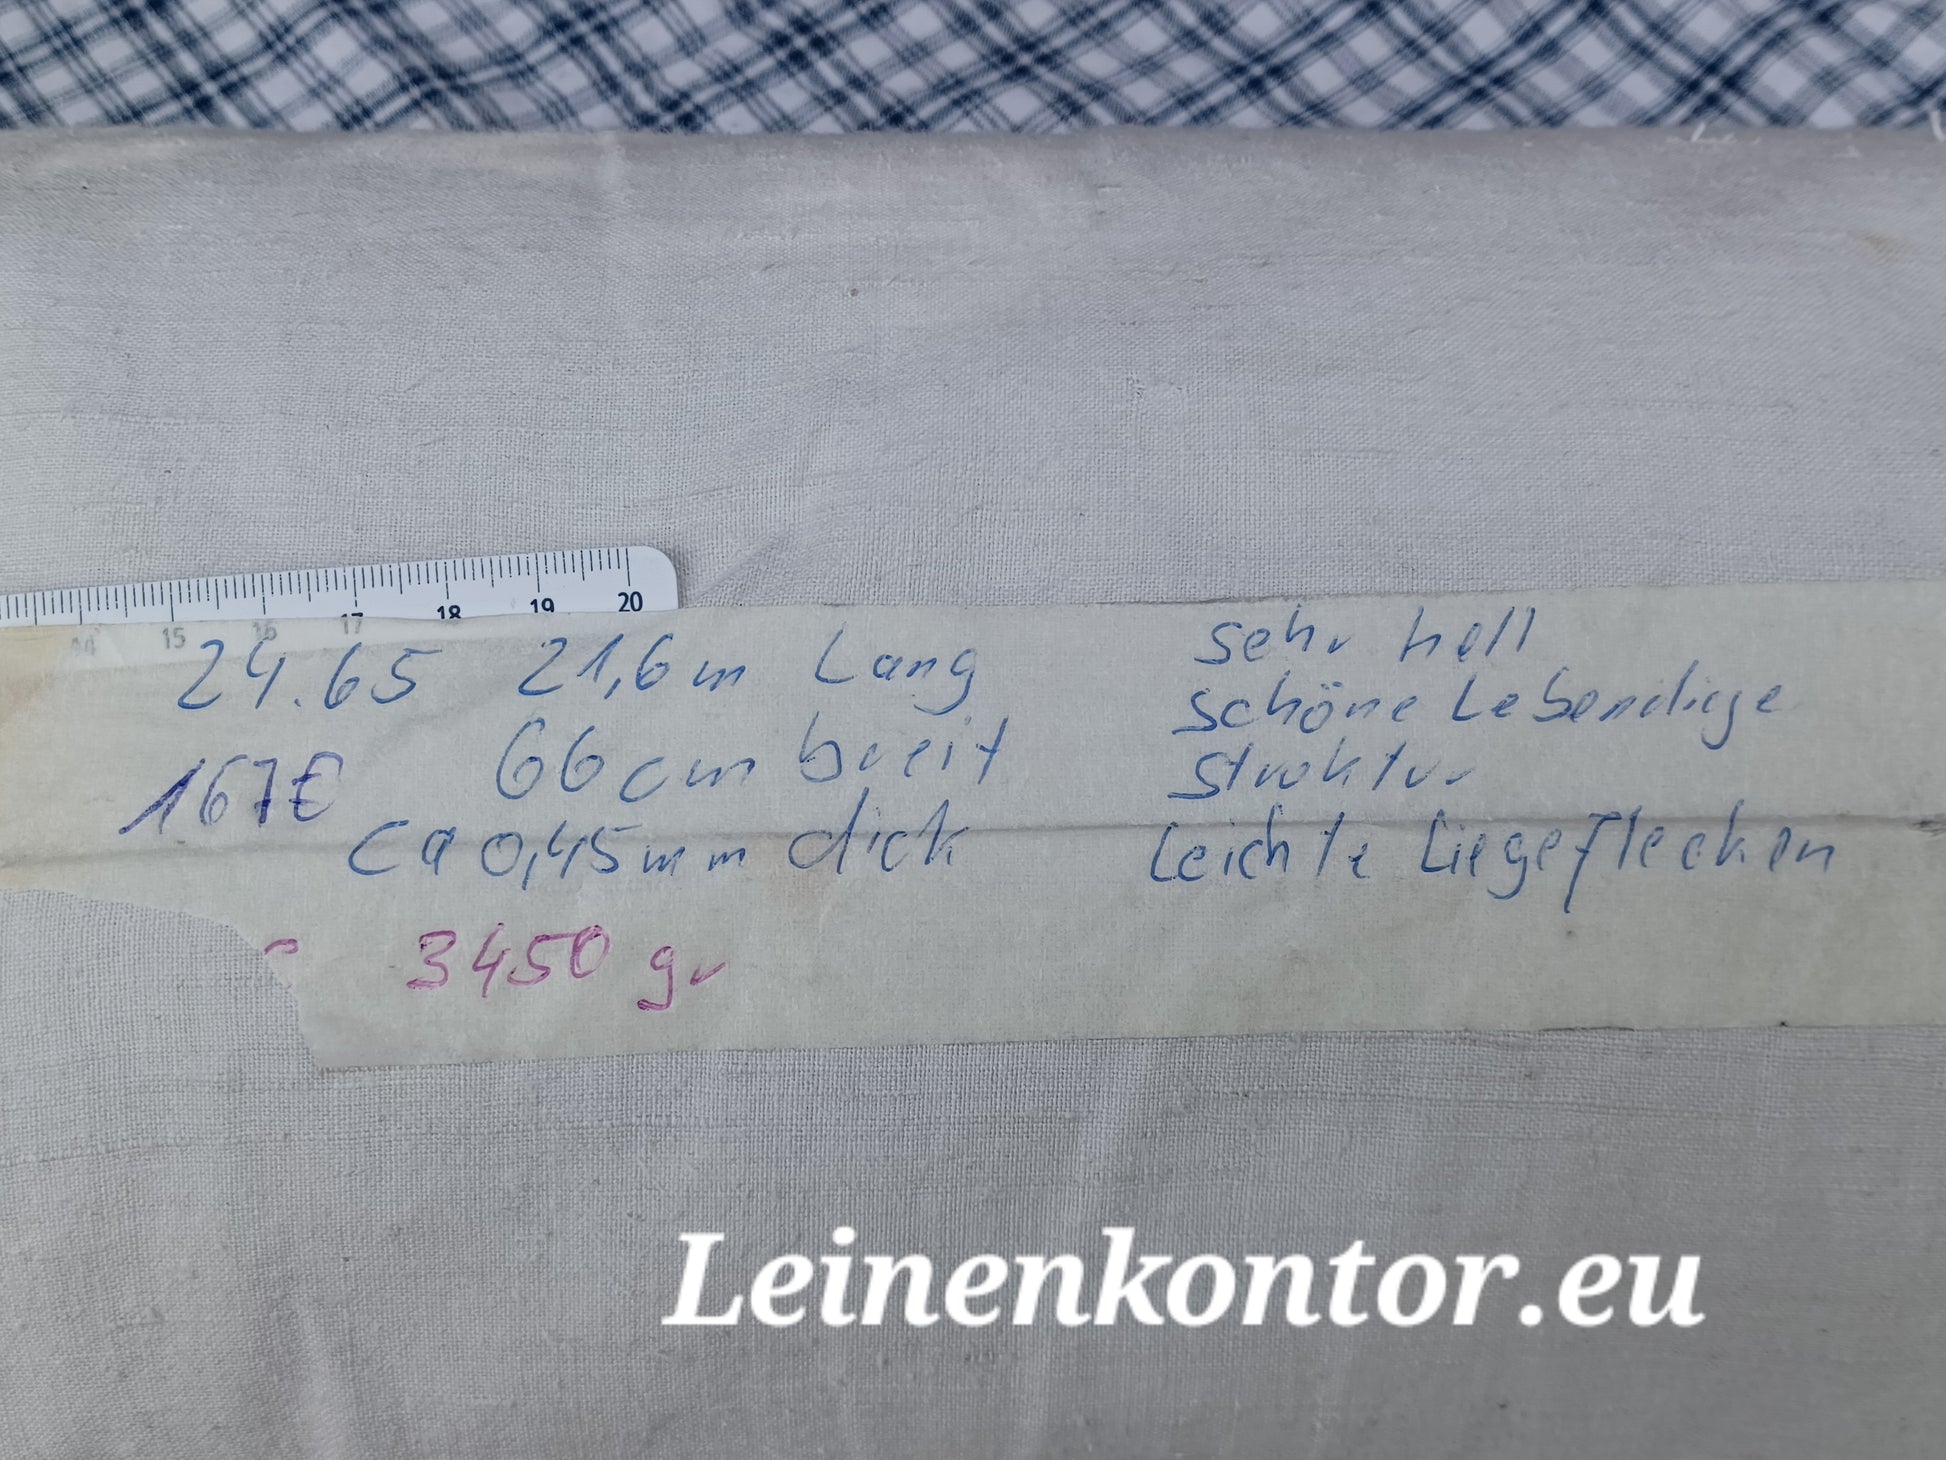 14 15 16 17 18 19 20
24.65 21,6 m Lang
66 cm breit
167€
ca 0,45 mm dick
3450 gr
sehr hell
schöne Lebendige
struktur
Leichte Liegeflecken
Leinenkontor.eu